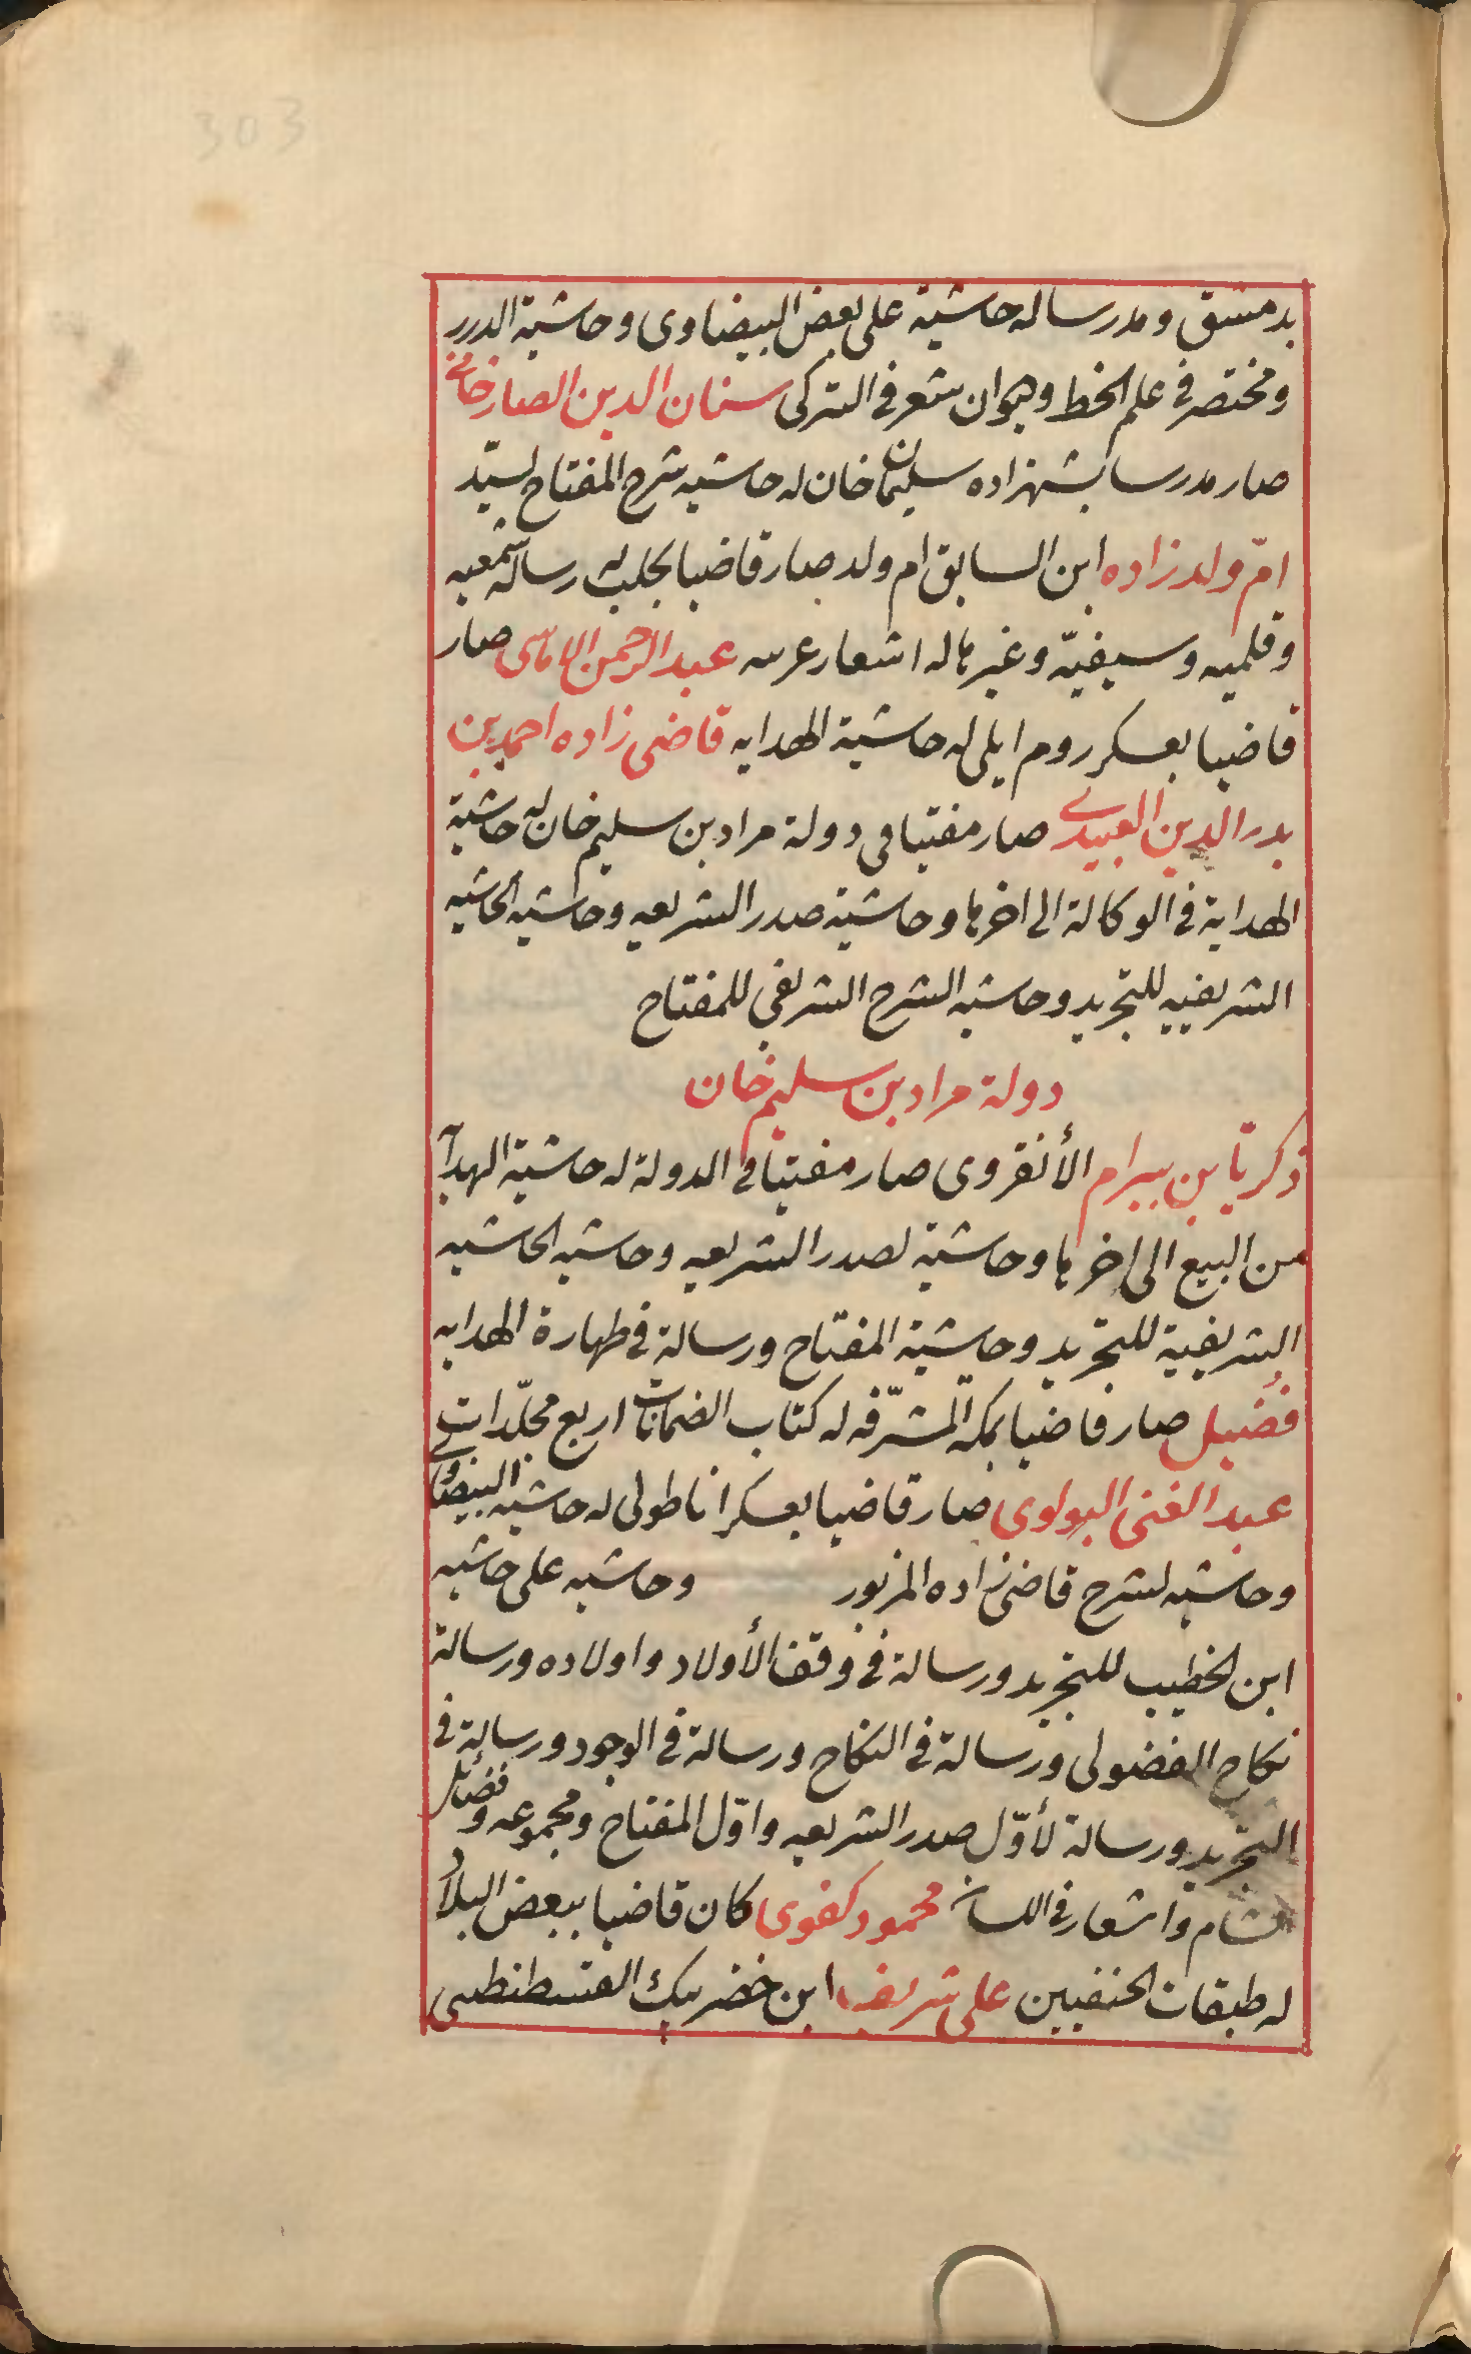 303
بدمشق ومدرسا له حاشية على بعض البيضاوى وحاشية الدرر
ومختصر فى علم الخط وديوان شعر فى التركى سنان الدين الصارخانى
صار مدرسا بشهزاده سليمان خان له حاشيه شرح المفتاح لسيّد
امّ ولد زاده ابن السابق ام ولد صار قاضيا بحلب له رسالة شمعيه
وقلميه وسيفيّه وغيرها له اشعار عربيه عبد الرحمن الاماسى صار
قاضيا بعسكر روم ايلى له حاشية الهدايه قاضى زاده احمد بن
بدر الدين صار مفتيا فى دولة مراد بن سليم خان له حاشية
الهداية فى الوكالة الى اخرها وحاشية صدر الشريعه وحاشيه الحاشيه
الشريفيه للتجريد وحاشيه الشرح الشريفى للمفتاح
دولة مراد بن سليم خان
زكريّا بن بيرام الأنقروى صار مفتيا فى الدولة له حاشية الهدآ
من البيع الى اخرها وحاشية لصدر الشريعه وحاشيه الحاشيه
الشريفية للتجريد وحاشية المفتاح ورسالة فى طهارة الهدايه
فُضيل صار قاضيا بمكة المشرّفه له كتاب الضمانات اربع مجلّدات
عبد الغنى البولوى صار قاضيا بعسكر اناطولى له حاشيه البيضاوى
وحاشيه لشرح قاضى زاده المزبور وحاشيه على حاشيه
ابن الخطيب للتجريد ورسالة فى وقف الأولاد واولاده ورسالة
نكاح الفضولى ورسالة فى النكاح ورسالة فى الوجود ورسالة فى
التجريد ورسالة لأوّل صدر الشريعه واوّل المفتاح ومجموعه وفضائل
شام واشعار فى اللسان محمود كفوى كان قاضيا ببعض البلاد
له طبقات الحنفيين على شريف ابن خضر بيك القسطنطينى